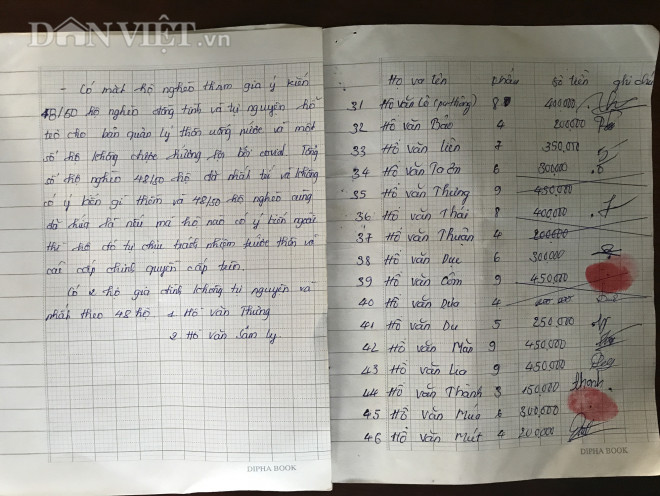 DÂN VIỆT.vn
- Có mặt hộ nghèo tham gia ý kiến
48/50 hộ nghèo đồng tình và tự nguyện hỗ
trợ cho ban quản lý thôn uống nước và một
số hộ không được hưởng lợi bởi covid. Tổng
số hộ nghèo 48/50 hộ đã nhất trí và không
có ý bàn gì thêm và 48/50 hộ nghèo cũng
đã hứa là nếu mà hộ nào có ý kiến ngoài
thì hộ đó tự chịu trách nhiệm trước thôn và
các cấp chính quyền cấp trên.
Có 2 hộ gia đình không tự nguyện và
nhất theo 48 hộ 1 Hồ Văn Thưng
2 Hồ Văn Sâm Ly.
DIPHA BOOK
Họ và tên khẩu số tiền ghi chú
31 Hồ Văn Lô 8 400,000
32 Hồ Văn Bảo 4 200,000
33 Hồ Văn Liên 7 350,000
34 Hồ Văn Ta Ơn 6 300,000
35 Hồ Văn Thưng 9 450,000
36 Hồ Văn Thái 8 400,000
37 Hồ Văn Thuần 4 200,000
38 Hồ Văn Dục 6 300,000
39 Hồ Văn Cồm 9 450,000
40 Hồ Văn Dưa 4
41 Hồ Văn Du 5 250,000
42 Hồ Văn Măn 9 450,000
43 Hồ Văn Lia 9 450,000
44 Hồ Văn Thành 3 150,000 Thành
45 Hồ Văn 6 300,000
46 Hồ Văn Mút 4 200,000
DIPHA BOOK